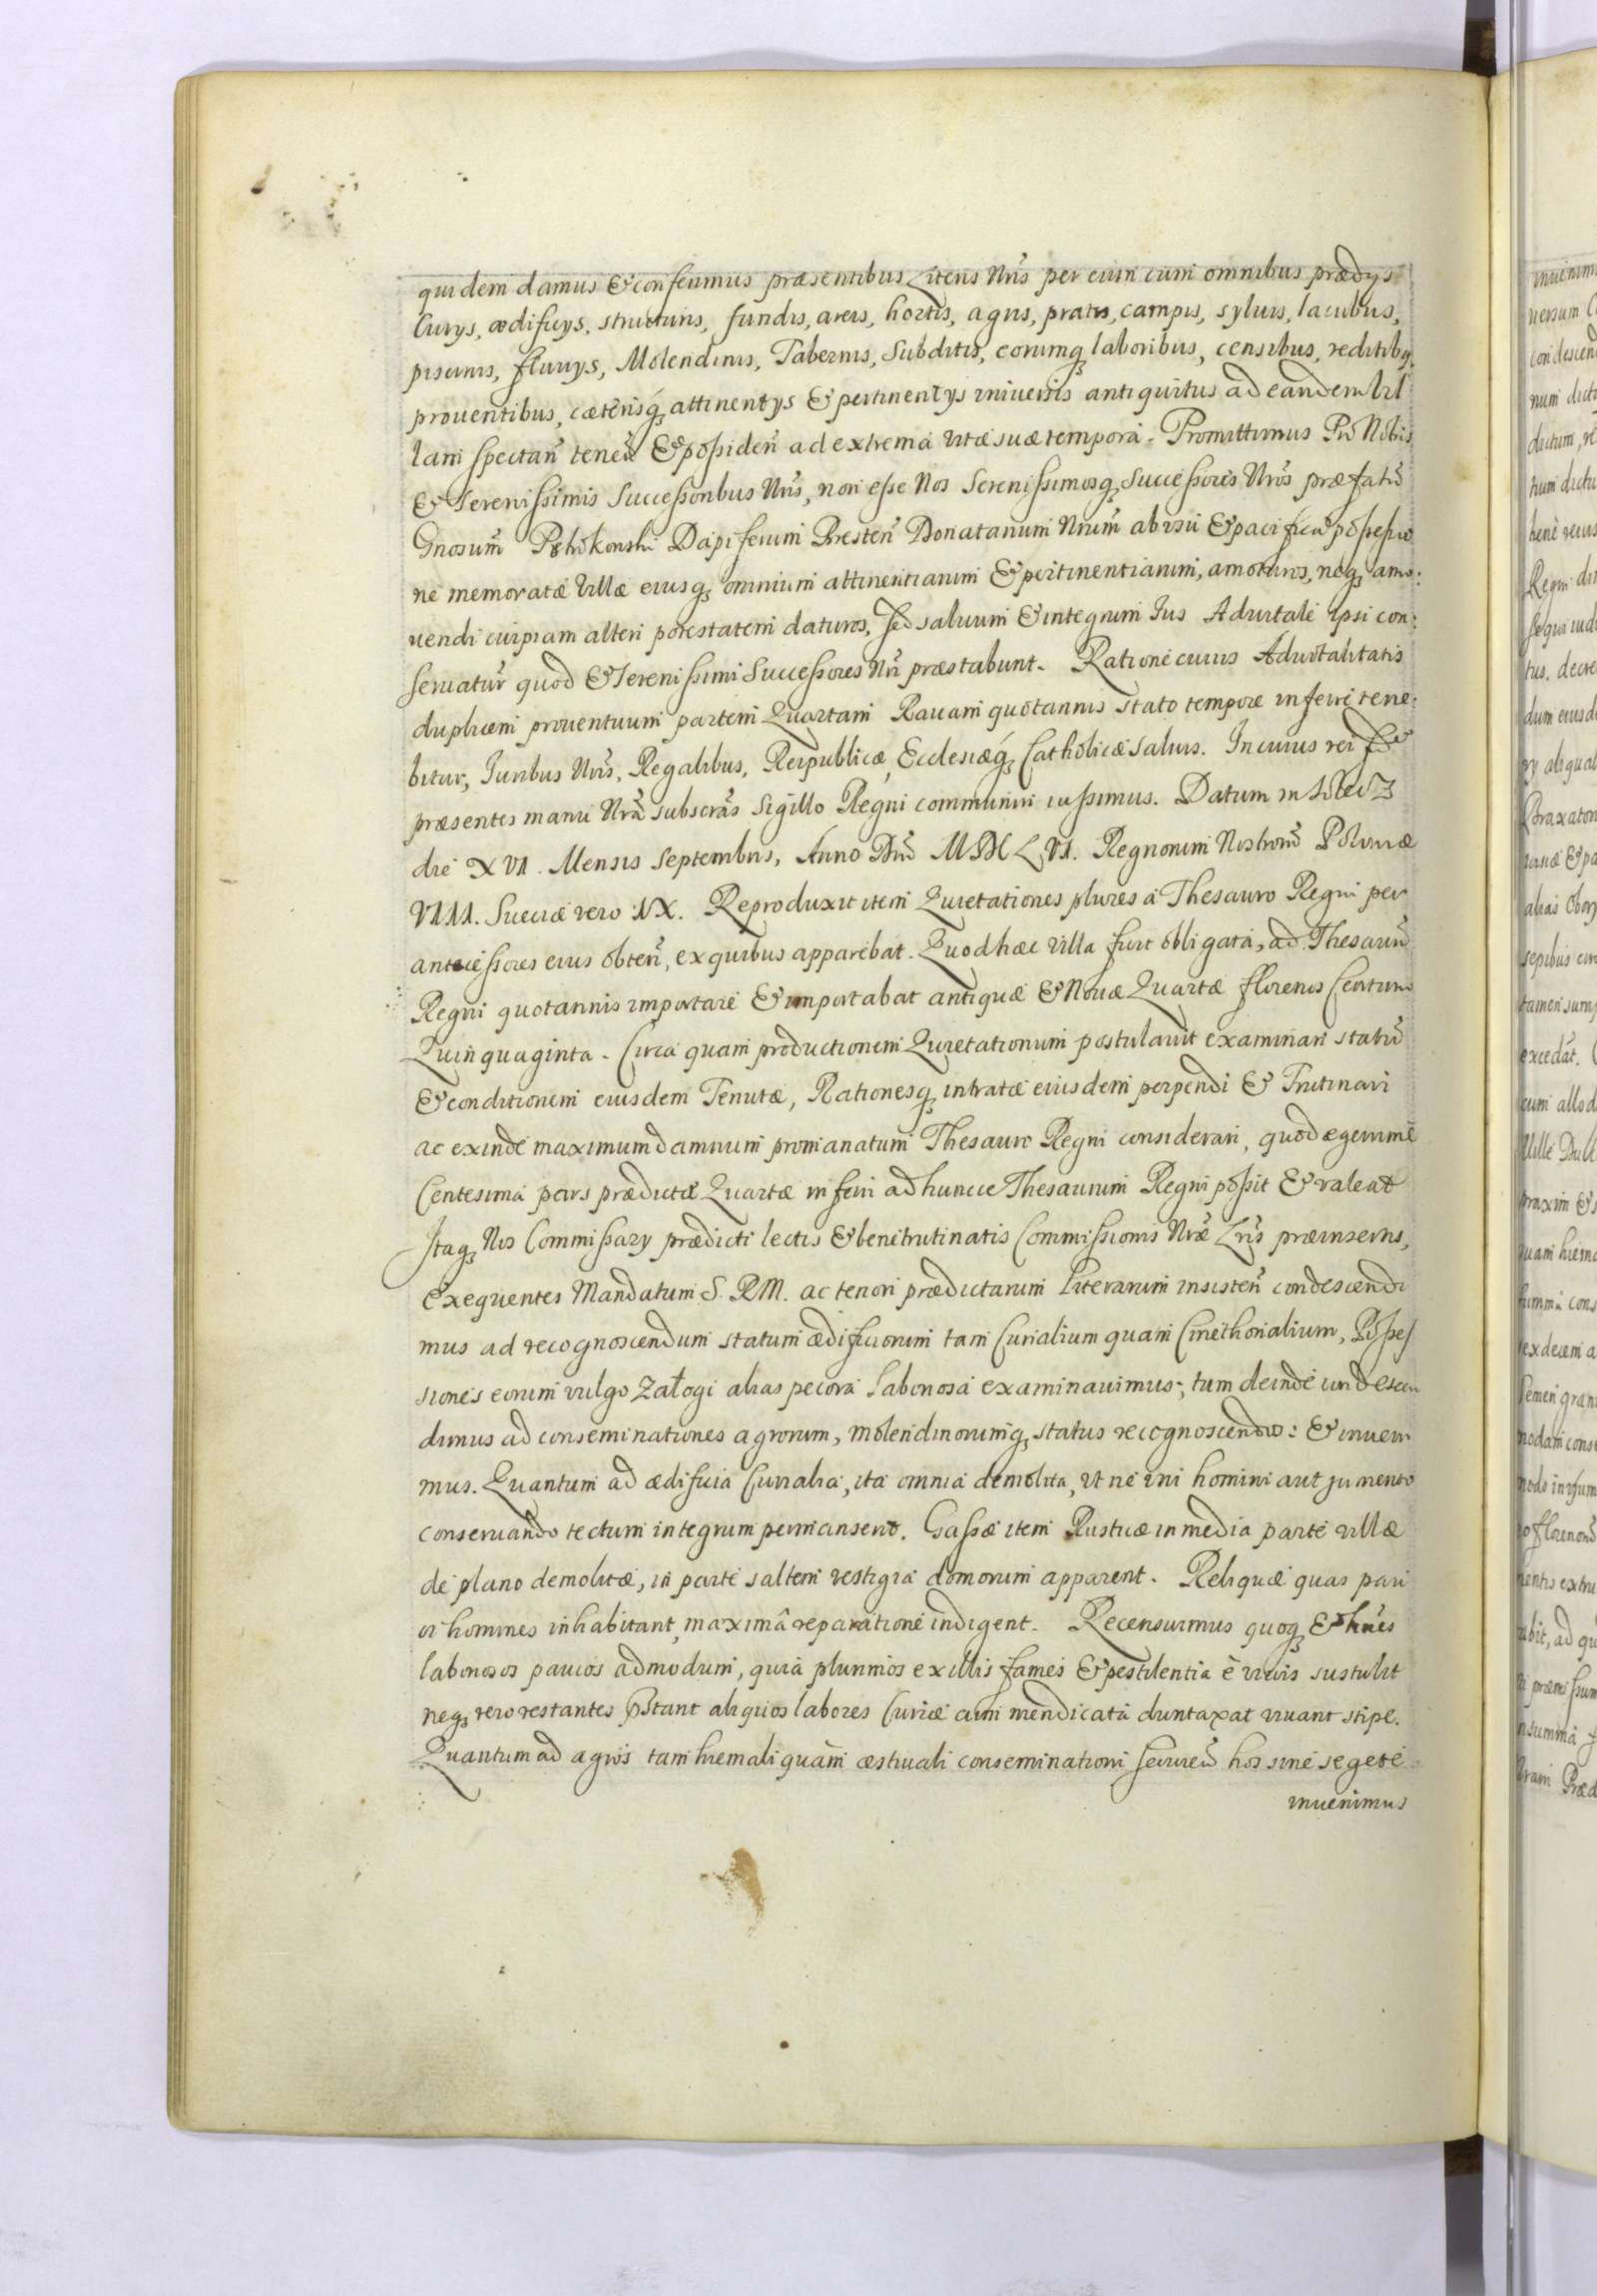 quidem damus & conferimus præsentibus Literis Nris per eum cum omnibus prædys
Curys, ædificys, structuris, fundis, areis, hortis, agris, pratis, campis, syluis, lacubus,
piscinis, fluuys, Molendinis, Tabernis, Subditis, eorumq laboribus, censibus, reditibq
prouentibus, cæterisq attinentys & pertinentys uniuersis antiquitus ad eandem Vil
lam spectan tenen & possiden ad extrema vitæ suæ tempora. Promittimus Pro Nobis
& Serenissimis Successoribus Nris, non esse Nos Serenissimosq Successores Nros præfatu
Gnosum Dapiferum Bresten Donatarium Nrum ab usu & pacifica possessio
ne memoratæ Villæ eiusq omnium attinentiarum & pertinentiarum, amoturos, neq amo:
uendi cuipiam alteri potestatem daturos, sed saluum & integrum Ius Aduitale ipsi con:
seruatur quod & Serenissimi Successores Nri præstabunt. Ratione cuius Aduitalitatis
duplicem prouentuum partem Quartam Rauam quotannis stato tempore inferri tene:
bitur, Iuribus Nris, Regalibus, Reipublicæ, Ecclesiæq Catholicæ saluis. In cuius rei fide
præsentes manu Nra subscras Sigillo Regni communiri iussimus. Datum in
die XVI. Mensis Septembris, Anno Dni MDCLVI. Regnorum Nostroru Poloniæ
VIII. Sueciæ vero IX. Reproduxit item Quietationes plures a Thesauro Regni per
antecessores eius obten, ex quibus apparebat. Quod hæc villa fuit obligata, ad Thesauru
Regni quotannis importare & importabat antiquæ & Nouæ Quartæ florenos Centum
Quinquaginta. Circa quam productionem Quietationum postulauit examinari statu
& conditionem eiusdem Tenutæ, Rationesq intratæ eiusdem perpendi & Trutinari
ac exinde maximum damnum promanatum Thesauro Regni considerari, quod ægerrime
Centesima pars prædictæ Quartæ inferri ad huncce Thesaurum Regni possit & valeat
Itaq Nos Commissary prædicti lectis & bene trutinatis Commissionis Nræ Lris præinsertis,
exequentes Mandatum S. R M. ac tenori prædictarum Literarum insisten condescendi
mus ad recognoscendum statum ædificiorum tam Curialium quam Cmethonalium, Posses
siones eorum vulgo Załogi alias pecora laboriosa examinauimus; tum deinde condescen
dimus ad conseminationes agrorum, molendinorumq status recognoscendo: & inueni
mus. Quantum ad ædificia Curialia, ita omnia demolita, vt ne uni homini aut jumento
conseruando tectum integrum permanserit. Cassæ item Rusticæ in media parte villæ
de plano demolitæ, in parte saltem vestigia domorum apparent. Reliquæ quas pau
ci homines inhabitant, maximâ reparatione indigent. Recensuimus quoq & hnes
laboriosos paucos admodum, quia plurimos ex illis fames & pestilentia è viuis sustulit
neq vero restantes pstant aliquos labores Curiæ cum mendicata duntaxat viuant stipe.
Quantum ad agros tam hiemali quam æstiuali conseminationi seruien hos sine segete
inuenimus